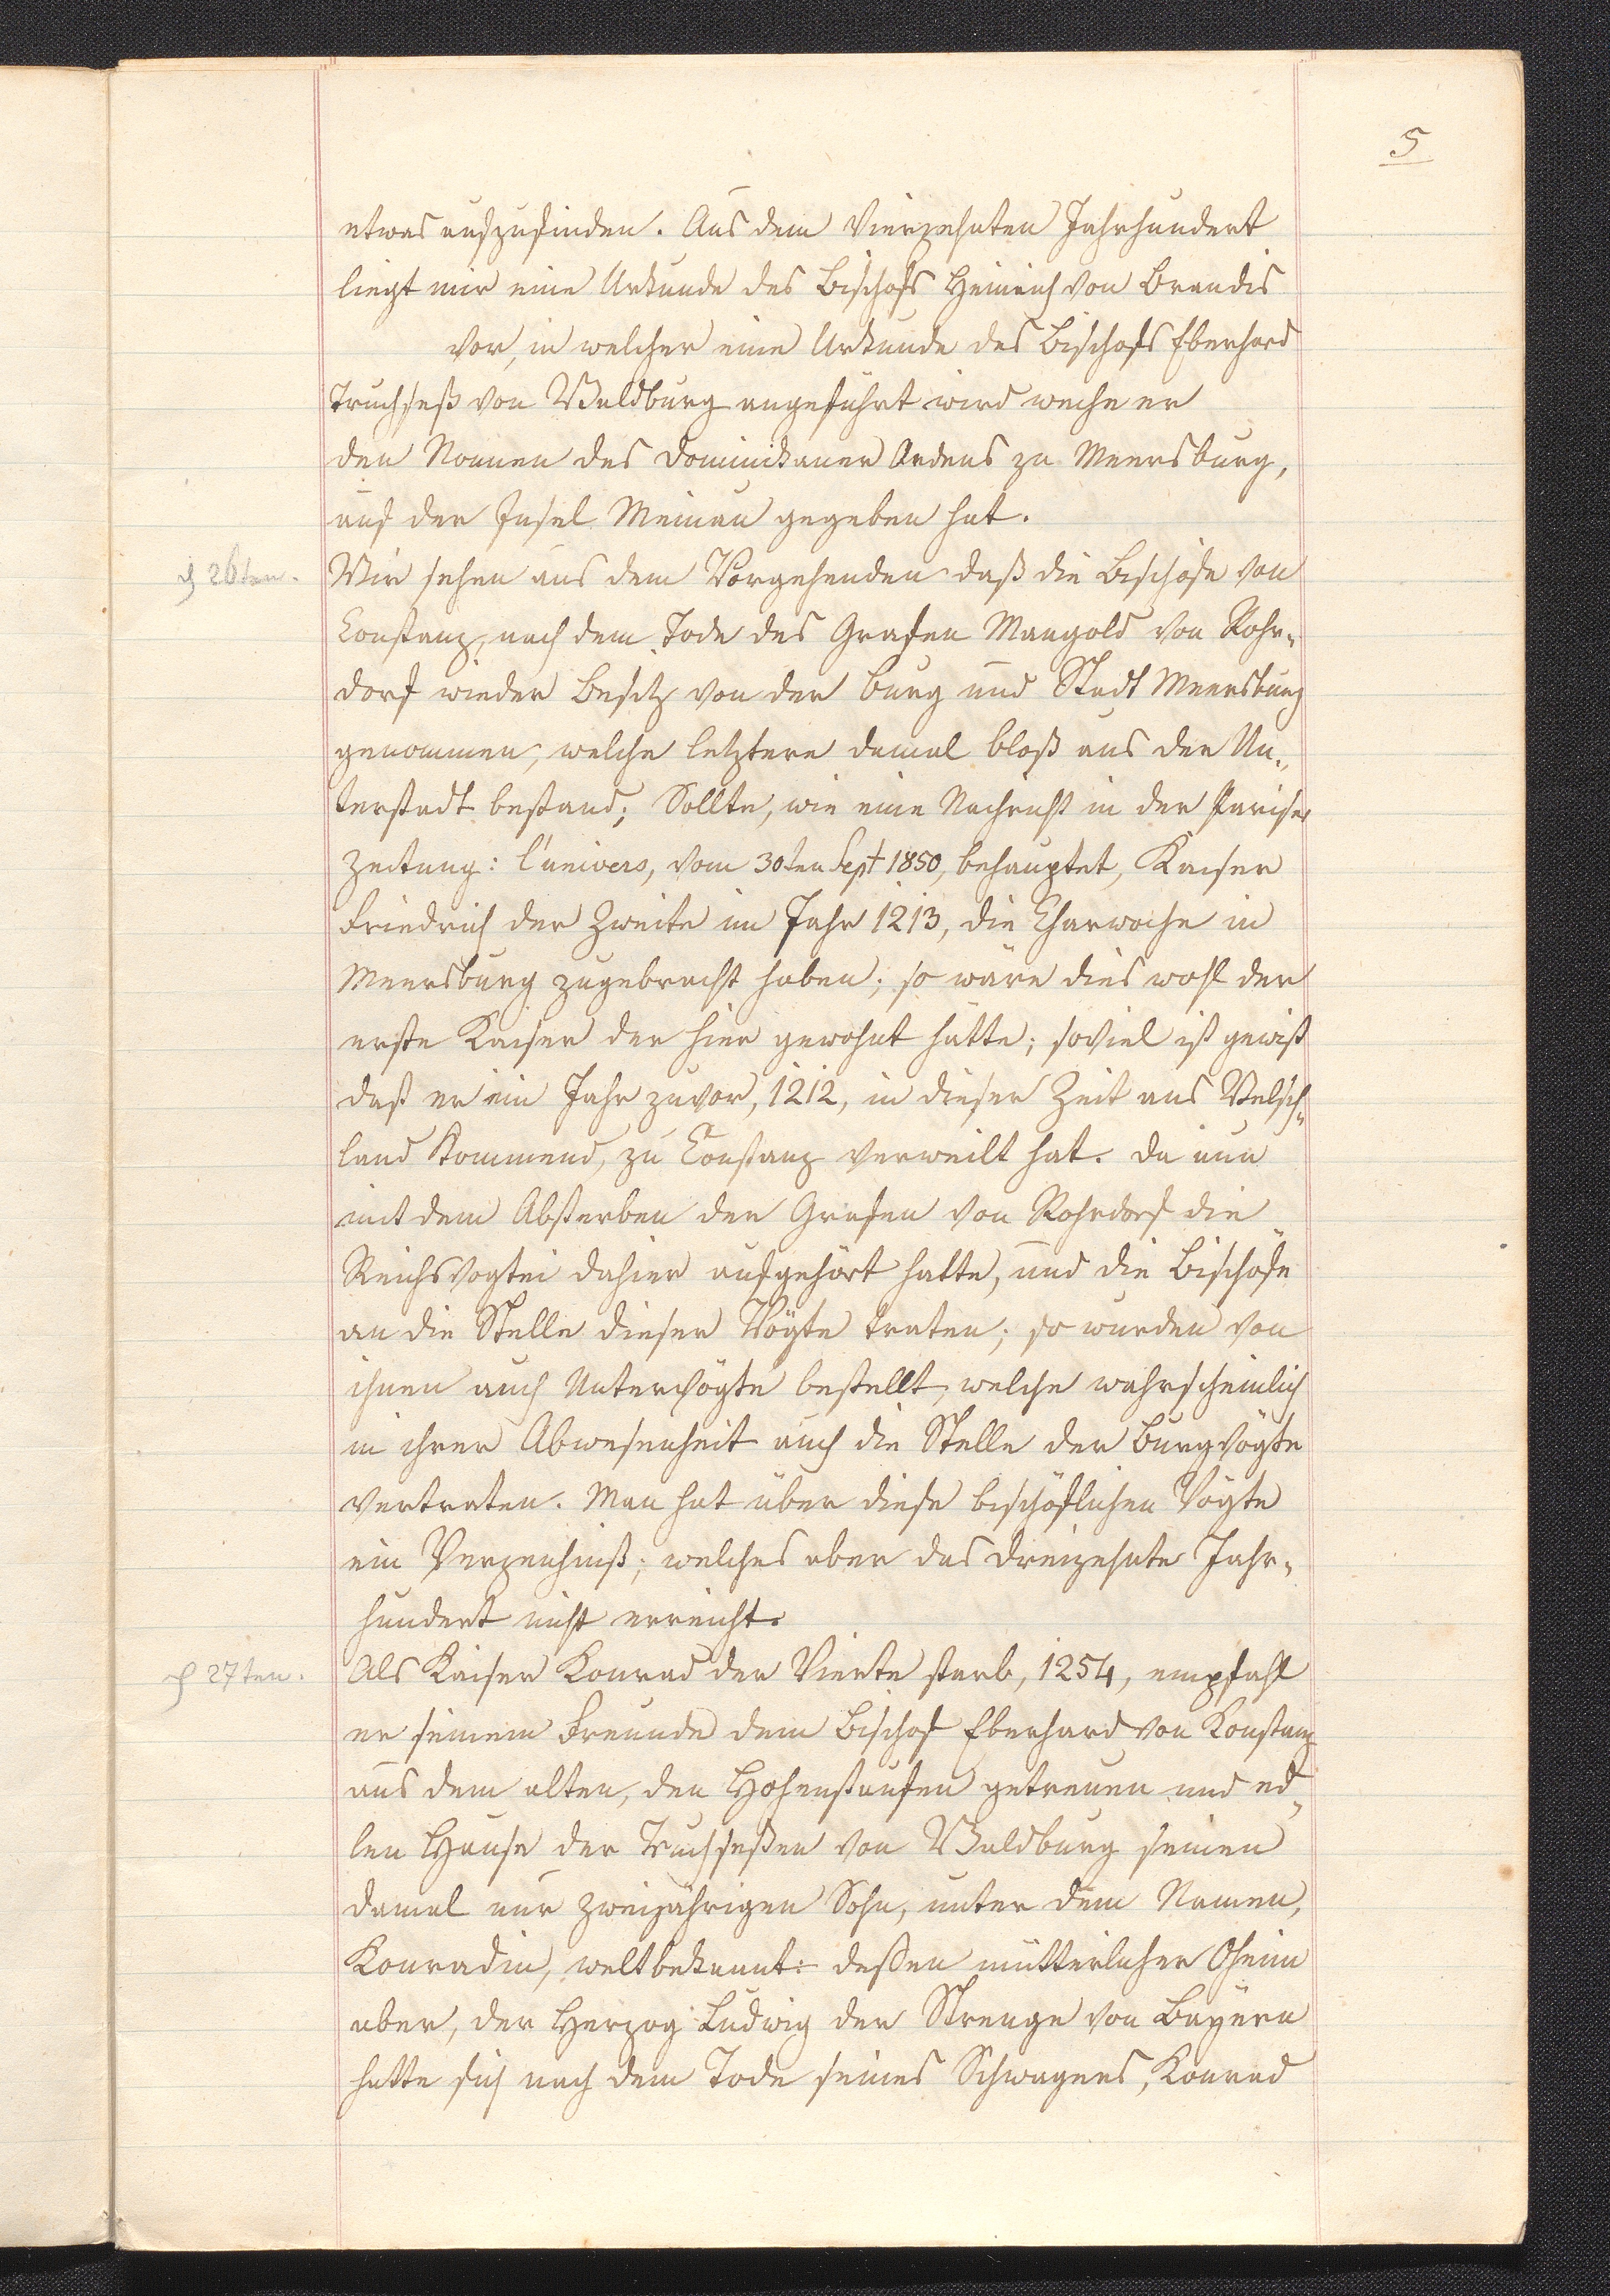 5
etwas aufzufinden. Aus dem Vierzehnten Jahrhundert
liegt mir eine Urkunde des Bischofs Heinrich von Brandis
vor, in welcher eine Urkunde des Bischofs Eberhard
Truchseß von Waldburg angeführt wird welche er
den Nonnen des Dominikaner Ordens zu Meersburg,
auf der Insel Meinau gegeben hat.
§ 26ten.
Wir sehen aus dem Vorgehenden daß die Bischöfe von
Constanz, nach dem Tode des Grafen Mangold von Rohr-
dorf wieder Besitz von der Burg und Stadt Meersburg
genommen, welche letztere damal bloß aus der Un-
terstadt bestand; Sollte, wie eine Nachricht in der Pariser
Zeitung: l'univers, vom 30ten Sept 1850, behauptet, Kaiser
Friedrich der Zweite im Jahr 1213, die Charwoche in
Meersburg zugebracht haben; so wäre dies wohl der
erste Kaiser der hier gewohnt hätte; soviel ist gewiß
daß er ein Jahr zuvor, 1212, in dieser Zeit aus Welsch-
land kommend, zu Constanz verweilt hat. Da nun
mit dem Absterben der Grafen von Rohrdorf die
Reichsvogtei dahier aufgehört hatte, und die Bischöfe
an die Stelle dieser Vögte traten; so wurden von
ihnen auch Untervögte bestellt, welche wahrscheinlich
in ihrer Abwesenheit auch die Stelle der Burgvögte
vertraten. Man hat über diese bischöflichen Vögte
ein Verzeichniß; welches aber das dreizehnte Jahr-
hundert nicht erreicht.
§ 27ten.
Als Kaiser Konrad der Vierte starb, 1254, empfahl
er seinem Freunde dem Bischof Eberhard von Konstanz
aus dem alten, den Hohenstaufen getreuen und ed-
len Hause der Truchseßen von Waldburg seinen
damal nur zweijährigen Sohn, unter dem Namen,
Konradin, weltbekannt: deßen mütterlicher Oheim
aber, der Herzog Ludwig der Strenge von Bayern
hatte sich nach dem Tode seines Schwagers, Konrad